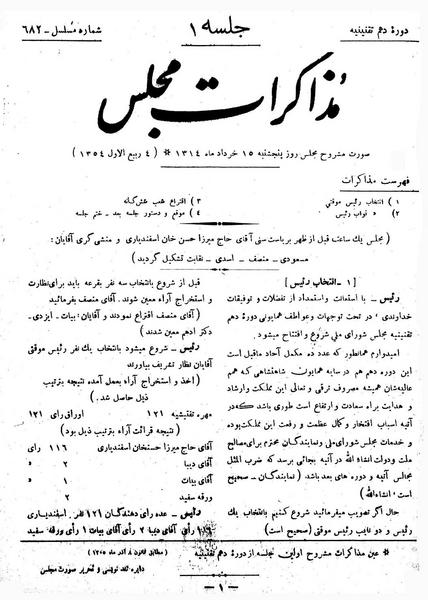 دورهٔ دهم تقنینیه
جلسه ۱
شماره مسلسل - ۶۸۲
مذاکرات مجلس
صورت مشروح مجلس روز پنجشنبه ۱۵ خرداد ماه ۱۳۱۴ * ( ۴ ربیع الاول ۱۳۵۴ )
فهرست مذاکرات
۱) انتخاب رئیس موقتی
۲) » نواب رئیس
۳) اقتراع شعب شش‌گانه
۴) موقع و دستور جلسه بعد - ختم جلسه
( مجلس یک ساعت قبل از ظهر بریاست سنی آقای حاج میرزا حسن خان اسفندیاری و منشی گری آقایان :
مسعودی - منصف - اسدی - نقابت تشکیل گردید )
[ ۱ - انتخاب رئیس ]
رئیس - با استعانت و استمداد از تفضلات و توفیقات
خداوندی ، در تحت توجهات و عواطف همایونی دورهٔ دهم
تقنینیه مجلس شورای ملی شروع و افتتاح میشود.
امیدوارم همانطور که عدد ده مکمل آحاد ماقبل است
این دوره دهم هم در سایه همایون شاهنشاهی که هم
عالیه‌شان همیشه مصروف ترقی و تعالی این مملکت و ارشاد
و هدایت براه سعادت و ارتفاع است طوری باشد که در
آتیه اسباب افتخار و کمال عظمت و رفعت این مملکت بوده
و خدمات مجلس شورای ملی و نمایندگان محترم برای مصالح
ملت و دولت انشاء الله در آتیه بجائی برسد که ضرب المثل
مجلس آتیه و دوره های بعد باشد، ( نمایندگان - صحیح
است ؛ انشاء الله )
حال اگر تصویب میفرمائید شروع کنیم بانتخاب یک
رئیس و دو نایب رئیس موقتی (صحیح است)
قبل از شروع بانتخاب سه نفر بقرعه باید برای نظارت
و استخراج آراء معین شوند. آقای منصف بفرمائید
(آقای منصف اقتراع نمودند و آقایان : بیات - ایزدی -
دکتر ادهم معین شدند )
رئیس - شروع میشود بانتخاب یک نفر رئیس موقتی
آقایان نظار تشریف بیاورند
(اخذ و استخراج آراء بعمل آمده نتیجه بترتیب
ذیل حاصل شد.)
مهره تفتیشیه ۱۲۱ اوراق رای ۱۲۱
( نتیجه قرائت آراء بترتیب ذیل بود )
آقای حاج میرزا حسنخان اسفندیاری ۱۱۶ رای
آقای دیبا ۲ »
آقای بیات ۱ »
ورقه سفید ۲
رئیس - عده رای دهندگان ۱۲۱ نفر. اسفندیاری
۱۱۶ رأی آقای دیبا ۲ رأی آقای بیات ۱ رأی ورقه سفید
* عین مذاکرات مشروح اولین جلسه از دورهٔ دهم تقنینیه
( مطابق قانون ۸ آذر ماه ۱۳۰۵ )
دایره تند نویسی و تحریر صورت مجلس
- ۱ -